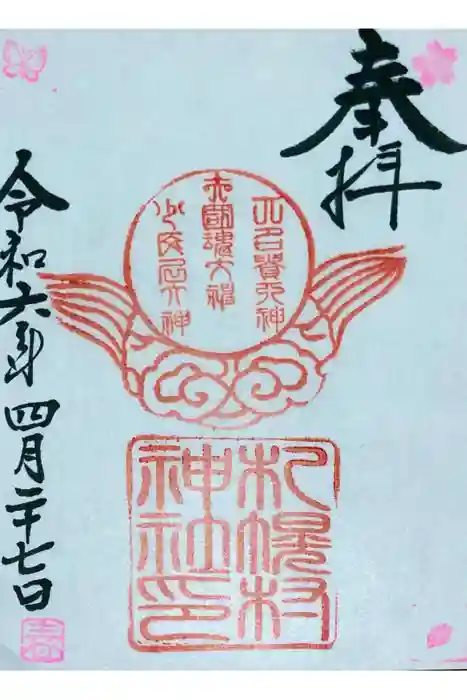 奉拝
大己貴大神
大國魂大神
少彦名大神
札幌村
神社印
令和六年四月二十七日